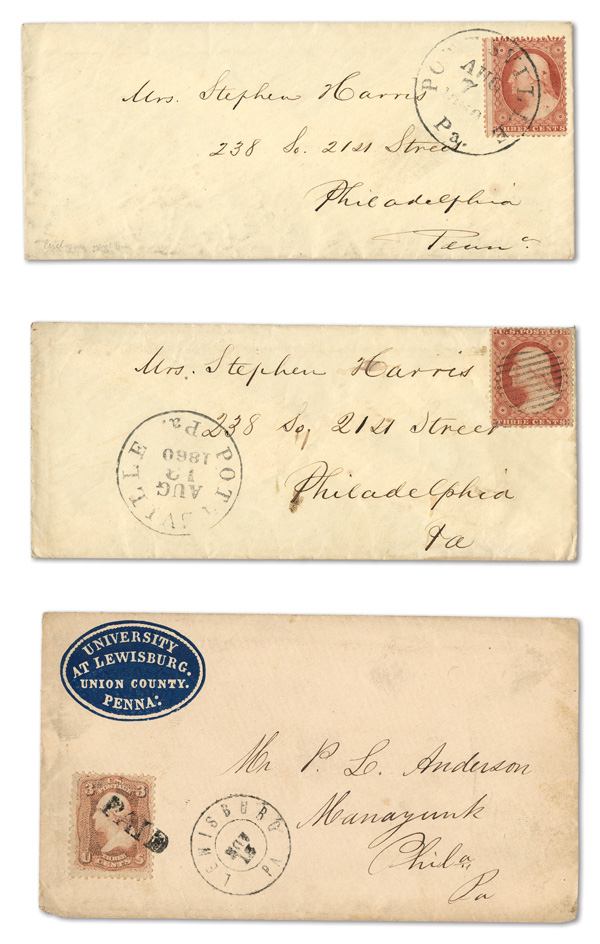 Mrs. Stephen Harris
238 So. 21st Street
Philadelphia
Penna.
POTTSVILLE
AUG
7
Pa.
THREE CENTS
Mrs. Stephen Harris
238 So. 21st Street
Philadelphia
Pa
U.S. POSTAGE
THREE CENTS
POTTSVILLE
Pa.
AUG
13
1860
UNIVERSITY
AT LEWISBURG.
UNION COUNTY.
PENNA.
Mr P. L. Anderson
Manayunk
Phila
Pa
3 3
U.S. POSTAGE
THREE
CENTS
U S
PAID
LEWISBURG
NOV
PA